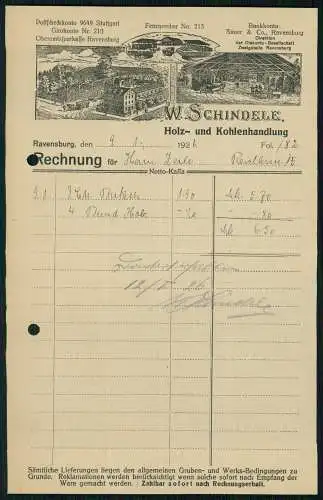 Postscheckkonto 9649 Stuttgart
Girokonto Nr. 210
Oberamtssparkasse Ravensburg
Fernsprecher Nr. 213
Bankkonto:
& Co., Ravensburg
Direktion
der Disconto-Gesellschaft
Zweigstelle Ravensburg
W. SCHINDELE,
Holz- und Kohlenhandlung
Ravensburg, den 9. 1. 1926 Fol. 182
Rechnung für Herrn
Netto-Kassa
9.1. 3 1.90 Mk. 5.70
4 Bund Holz -.20 -.80
Mk. 6.50
Dankend erhalten
26
W. Schindele
Sämtliche Lieferungen liegen den allgemeinen Gruben- und Werks-Bedingungen zu
Grunde. Reklamationen werden berücksichtigt wenn solche sofort nach Empfang der
Ware gemacht werden. Zahlbar sofort nach Rechnungserhalt.